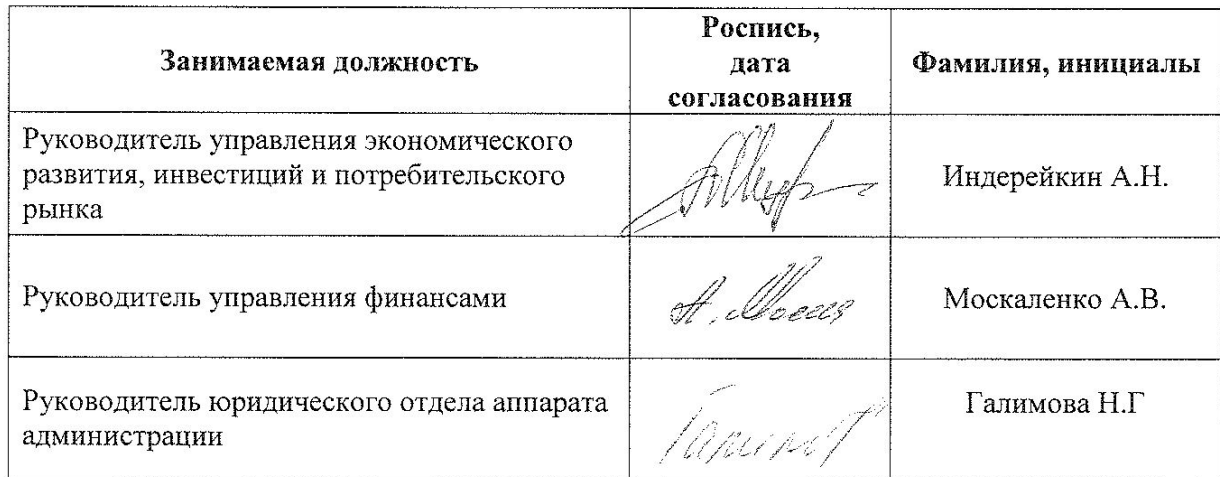 Занимаемая должность
Роспись,
дата
согласования
Фамилия, инициалы
Руководитель управления экономического
развития, инвестиций и потребительского
рынка
Индерейкин А.Н.
Руководитель управления финансами
Москаленко А.В.
Руководитель юридического отдела аппарата
администрации
Галимова Н.Г